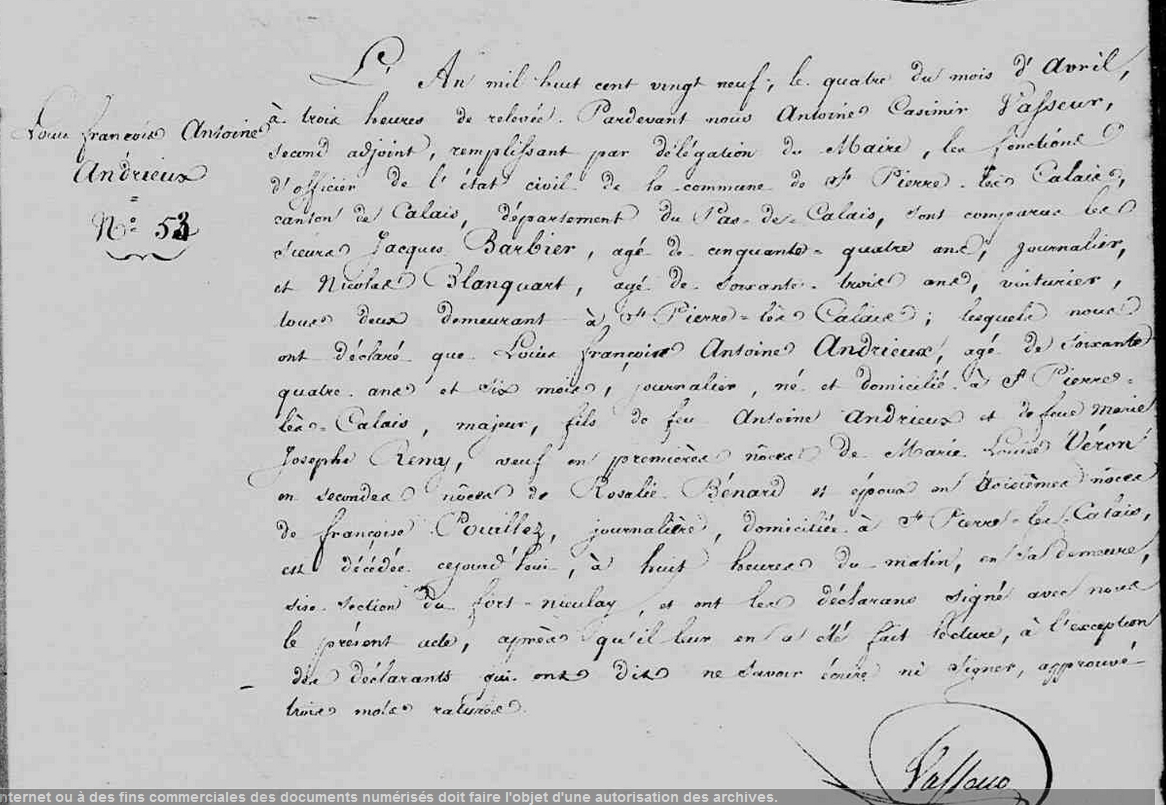 Louis françois Antoine
Andrieux
=
N.° 53
L'An mil huit cent vingt neuf, le quatre du mois d'Avril,
à trois heures de relevée. Pardevant nous Antoine Casimir Vasseur,
second adjoint, remplissant par délégation du Maire, les fonctions
d'officier de l'état civil de la commune de St Pierre-lès Calais,
canton de Calais, département du Pas-de-Calais, sont comparus les
sieurs Jacques Barbier, agé de cinquante-quatre ans, journalier,
et Nicolas Blanquart, agé de soixante-trois ans, vinturier,
tous deux demeurant à St Pierre=lès Calais; lesquels nous
ont déclaré que Louis françois Antoine Andrieux, agé de soixante
quatre ans et six mois, journalier, né et domicilié à St Pierre=
lès-Calais, majeur, fils de feu Antoine Andrieux et de feue Marie
Josephe Remy, veuf en premières nôces de Marie Louise Véron
en secondes nôces de Rosalie Bénard et époux en troisièmes nôces
de françoise Pouillez, journalière, domiciliée à St Pierre-lès-Calais,
est décédée cejourd'hui, à huit heures du matin, en sa demeure,
sise section du fort-nieulay, et ont les déclarans signé avec nous
le présent acte, après qu'il leur en a été fait lecture, à l'exception
des déclarants qui ont dit ne savoir écrire ni signer, approuvé
trois mots raturés.
Vasseur
nternet ou à des fins commerciales des documents numérisés doit faire l'objet d'une autorisation des archives.